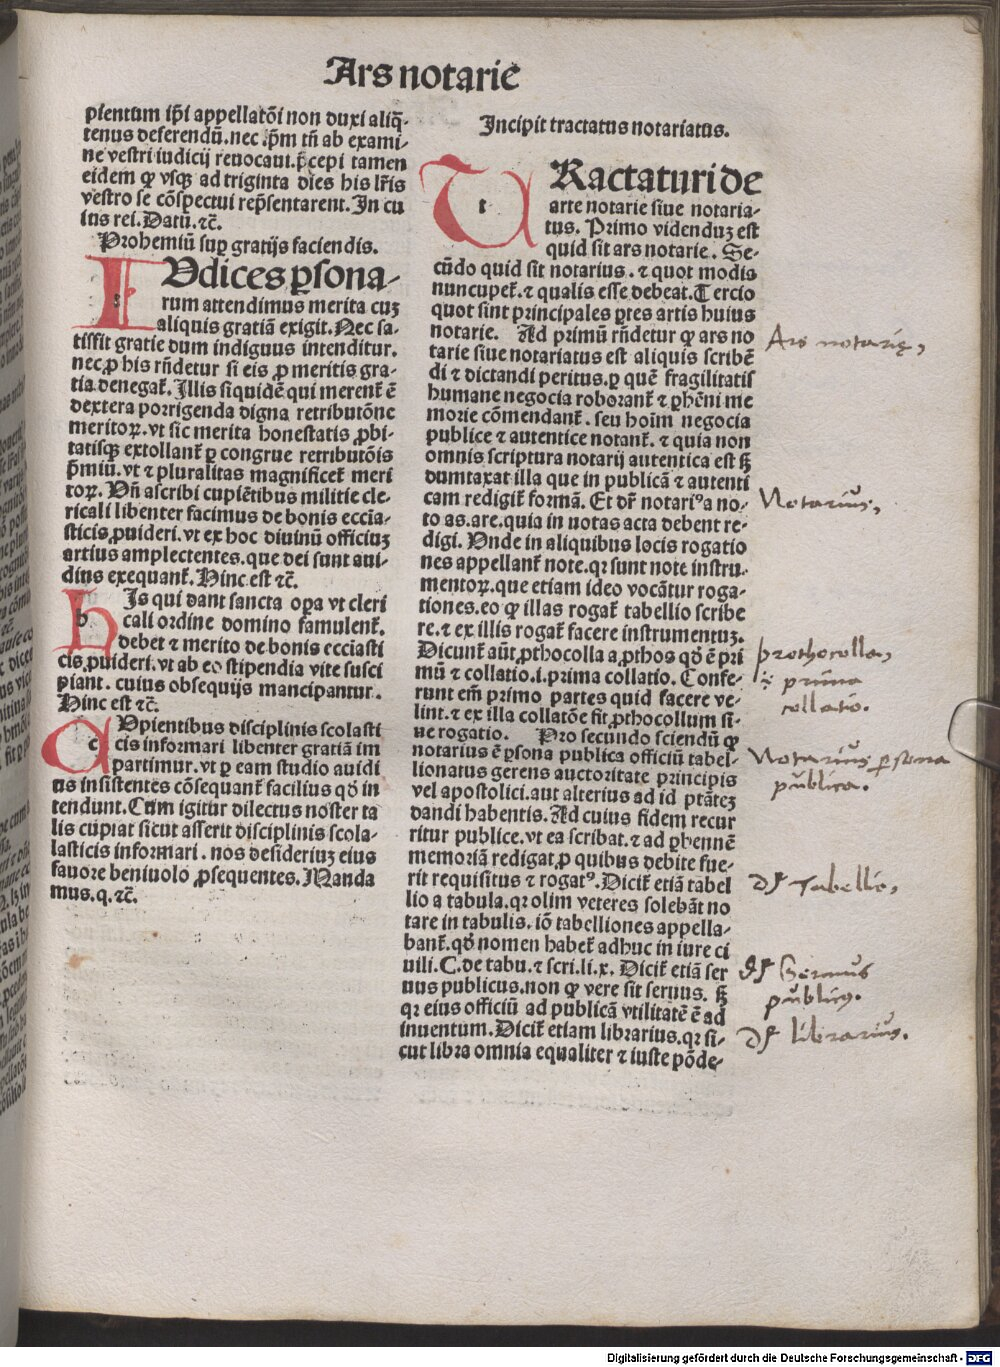 Ars notarie
pientum ip̄i appellatõi non duxi aliq̄-
tenus deferendũ.nec .p̄m tñ ab exami-
ne vestri iudicij reuocaui.p̄cepi tamen
eidem ꝙ vsqꝫ ad triginta dies his lr̄is
vestro se cõspectui rep̄sentarent.In cu
ius rei.Datũ.ꝛc̄.
Prohemiũ suꝑ gratijs faciendis.
IUdices ꝑsona-
rum attendimus merita cuꝫ
aliquis gratiã exigit.Nec sa-
tisfit gratie dum indignus intenditur.
nec ꝓ his rñdetur si eis ꝓ meritis gra-
tia denegat̃.Illis siquidẽ qui merent̃ ẽ
dextera porrigenda digna retributõne
meritoꝝ.vt sic merita honestatis ꝓbi-
tatisqꝫ extollant̃ ꝑ congrue retributõis
p̄miũ.vt ⁊ pluralitas magnificet̃ meri
toꝝ. Vñ ascribi cupiẽtibus militie cle-
ricali libenter facimus de bonis eccia-
sticis ꝓuideri.vt ex hoc diuinũ officiuꝫ
artius amplectentes.que dei sunt aui-
dius exequant̃.Hinc est ꝛc̄.
h
HIs qui dant sancta oꝑa vt cleri
cali ordine domino famulent̃.
debet ⁊ merito de bonis ecciasti
cis ꝓuideri.vt ab eo stipendia vite susci
piant. cuius obsequijs mancipantur.
Hinc est ꝛc̄.
CUpientibus disciplinis scolasti
c
cis informari libenter gratiã im
partimur.vt ꝑ eam studio auidi
us insistentes cõsequant̃ facilius qd̕ in
tendunt.Cum igitur dilectus noster ta
lis cupiat sicut asserit disciplinis scola-
lasticis informari. nos desideriuꝫ eius
fauore beniuolo ꝓsequentes.Manda
mus.q.ꝛc̄.
Incipit tractatus notariatus.
TRactaturi de
t
arte notarie siue notaria-
tus. Primo videnduꝫ est
quid sit ars notarie. Se-
cũdo quid sit notarius. ⁊ quot modis
nuncupet̃. ⁊ qualis esse debeat.Tercio
quot sint principales ꝑtes artis huius
notarie. Ad primũ rñdetur ꝙ ars no
tarie siue notariatus est aliquis scribẽ
di ⁊ dictandi peritus.ꝑ quẽ fragilitatis
humane negocia roborant̃ ⁊ ꝑhẽni me
morie cõmendant̃. seu hoĩm negocia
publice ⁊ autentice notant̃. ⁊ quia non
omnis scriptura notarij autentica est sꝫ
dumtaxat illa que in publicã ⁊ autenti
cam redigit̃ formã. Et dr̄ notariꝰ a no-
to as.are.quia in notas acta debent re-
digi. Vnde in aliquibus locis rogatio
nes appellant̃ note.qꝛ sunt note instru-
mentoꝝ.que etiam ideo vocãtur roga-
tiones.eo ꝙ illas rogat̃ tabellio scribe
re.⁊ ex illis rogat̃ facere instrumentuꝫ.
Dicunt̃ aũt ꝓthocolla a ꝓthos qd̕ ẽ pri
mũ ⁊ collatio.i.prima collatio. Confe-
runt em̃ primo partes quid facere ve-
lint.⁊ ex illa collatõe fit ꝓthocollum si-
ue rogatio. Pro secundo sciendũ ꝙ
notarius ẽ ꝑsona publica officiũ tabel-
lionatus gerens auctoritate principis
vel apostolici.aut alterius ad id ptãteꝫ
dandi habentis. Ad cuius fidem recur
ritur publice.vt ea scribat.⁊ ad ꝑhennẽ
memoriã redigat.ꝓ quibus debite fue-
rit requisitus ⁊ rogatꝰ.Dicit̃ etiã tabel
lio a tabula.qꝛ olim veteres solebãt no
tare in tabulis.iõ tabelliones appella-
bant̃.qd̕ nomen habet̃ adhuc in iure ci
uili.C.de tabu.⁊ scri.li.x. Dicit̃ etiã ser
uus publicus.non ꝙ vere sit seruus. sꝫ
qꝛ eius officiũ ad publicã vtilitatẽ ẽ ad
inuentum.Dicit̃ etiam librarius.qꝛ si-
cut libra omnia equaliter ⁊ iuste põde-
Ars notarię,
Notarius,
prothocolla,
prima
collatio.
Notarius ꝑsona
publica.
dr̄ Tabellio,
dr̄ Seruus
publicꝰ.
dr̄ librarius.
Digitalisierung gefördert durch die Deutsche Forschungsgemeinschaft - DFG